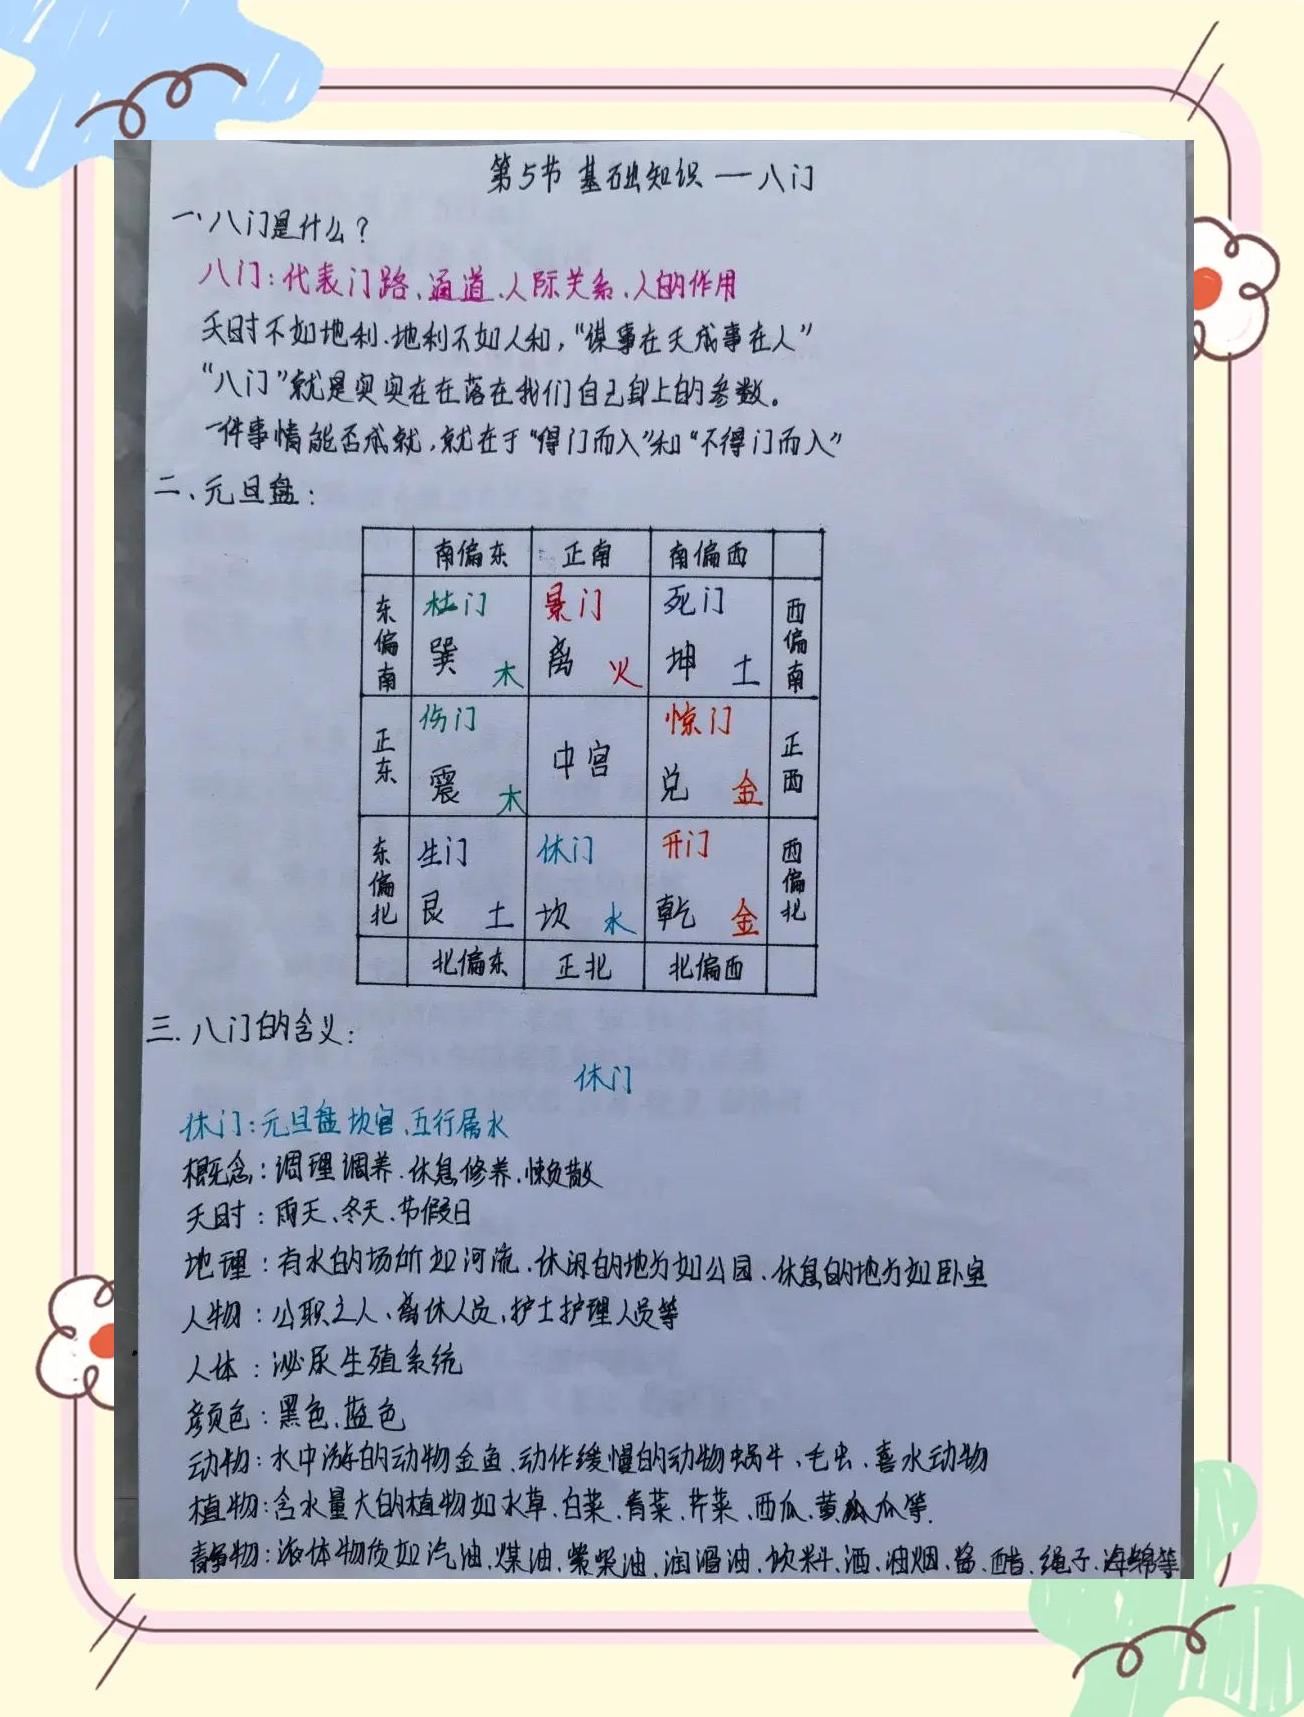 第5节 基础知识 — 八门
一、八门是什么?
八门:代表门路、通道、人际关系、人的作用
天时不如地利、地利不如人和,“谋事在天成事在人”
“八门”就是实实在在落在我们自己身上的参数。
一件事情能否成就,就在于“得门而入”和“不得门而入”
二、元旦盘:
南偏东 正南 南偏西
东偏南 杜门 巽 木 景门 离 火 死门 坤 土 西偏南
正东 伤门 震 木 中宫 惊门 兑 金 正西
东偏北 生门 艮 土 休门 坎 水 开门 乾 金 西偏北
北偏东 正北 北偏西
三、八门的含义:
休门
休门:元旦盘坎宫、五行属水
概念:调理调养、休息修养、懒散
天时:雨天、冬天、节假日
地理:有水的场所如河流、休闲的地方如公园、休息的地方如卧室
人物:公职之人、离休人员、护士护理人员等
人体:泌尿生殖系统
颜色:黑色、蓝色
动物:水中游的动物金鱼、动作缓慢的动物蜗牛、毛虫、喜水动物
植物:含水量大的植物如水草、白菜、青菜、芹菜、西瓜、黄瓜等.
静物:液体物质如汽油、煤油、柴油、润滑油、饮料、酒、油烟、酱、醋、绳子、海绵等